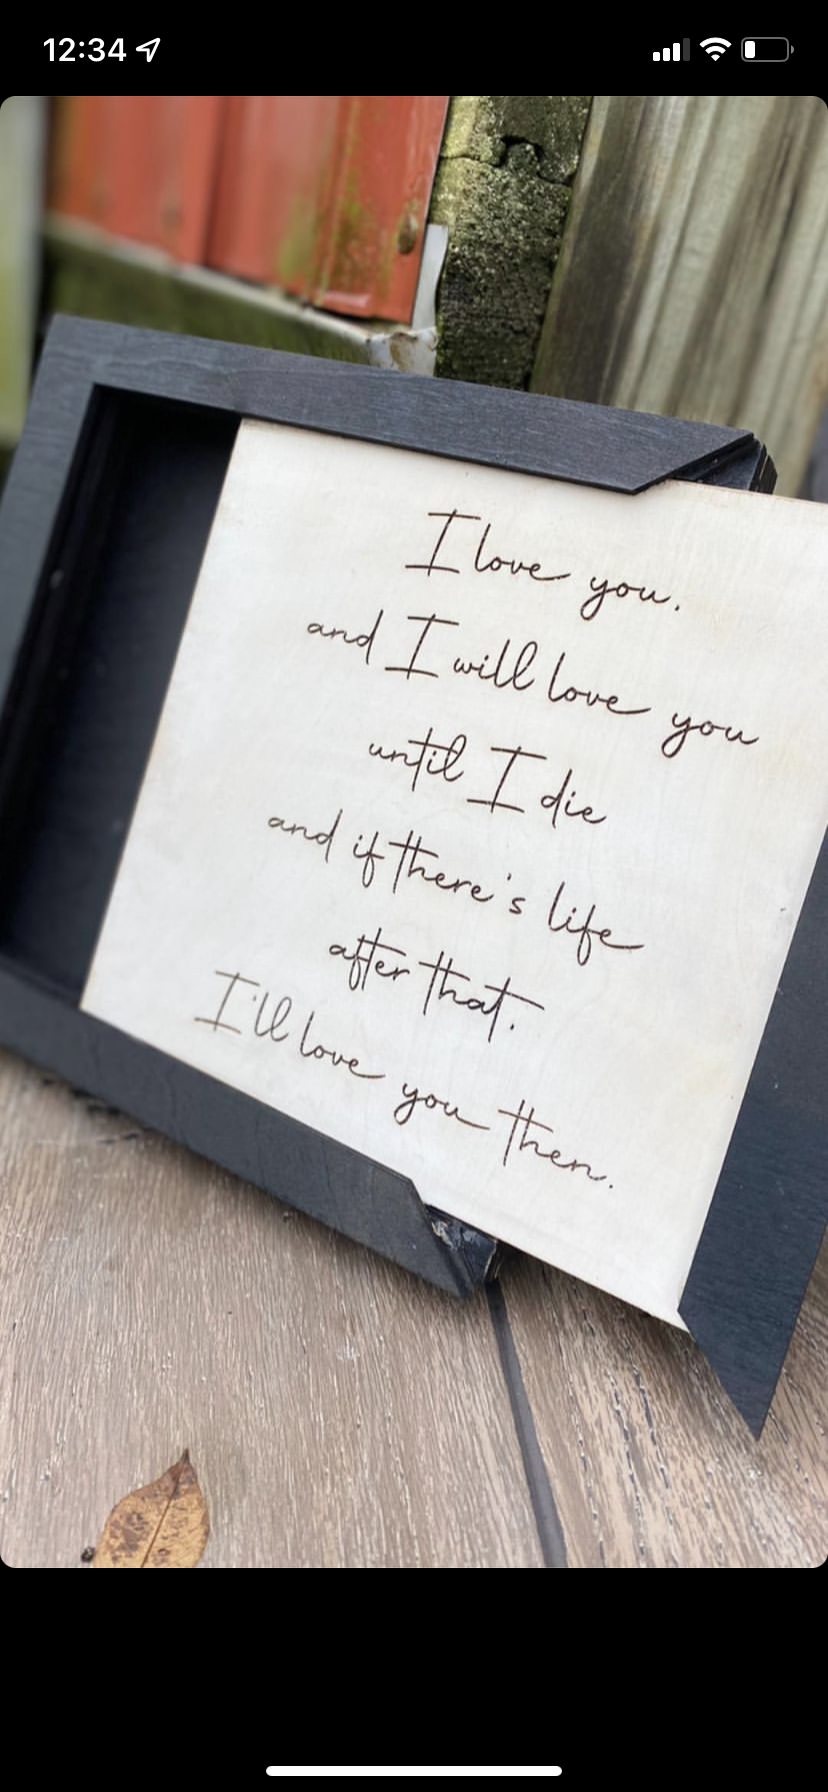 12:34
I love you.
and I will love you
until I die
and if there's life
after that.
I'll love you then.